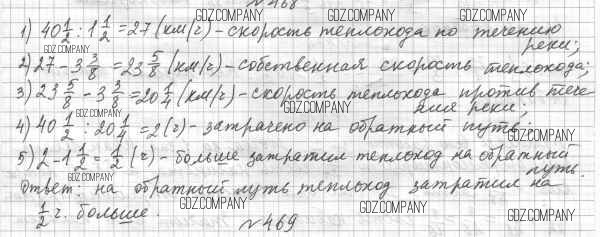 №468
GDZ.COMPANY GDZ.COMPANY
1) 40 1/2 : 1 1/2 = 27 (км/ч) - скорость теплохода по течению
реки;
GDZ.COMPANY
2) 27 - 3 3/8 = 23 5/8 (км/ч) - собственная скорость теплохода;
GDZ.COMPANY
3) 23 5/8 - 3 3/8 = 20 1/4 (км/ч) - скорость теплохода против тече-
ния реки;
GDZ.COMPANY GDZ.COMPANY
4) 40 1/2 : 20 1/4 = 2 (ч) - затрачено на обратный путь.
GDZ.COMPANY
5) 2 - 1 1/2 = 1/2 (ч) - больше затратил теплоход на обратный
путь.
GDZ.COMPANY
Ответ: на обратный путь теплоход затратил на
1/2 ч. больше.
GDZ.COMPANY GDZ.COMPANY GDZ.COMPANY
№469